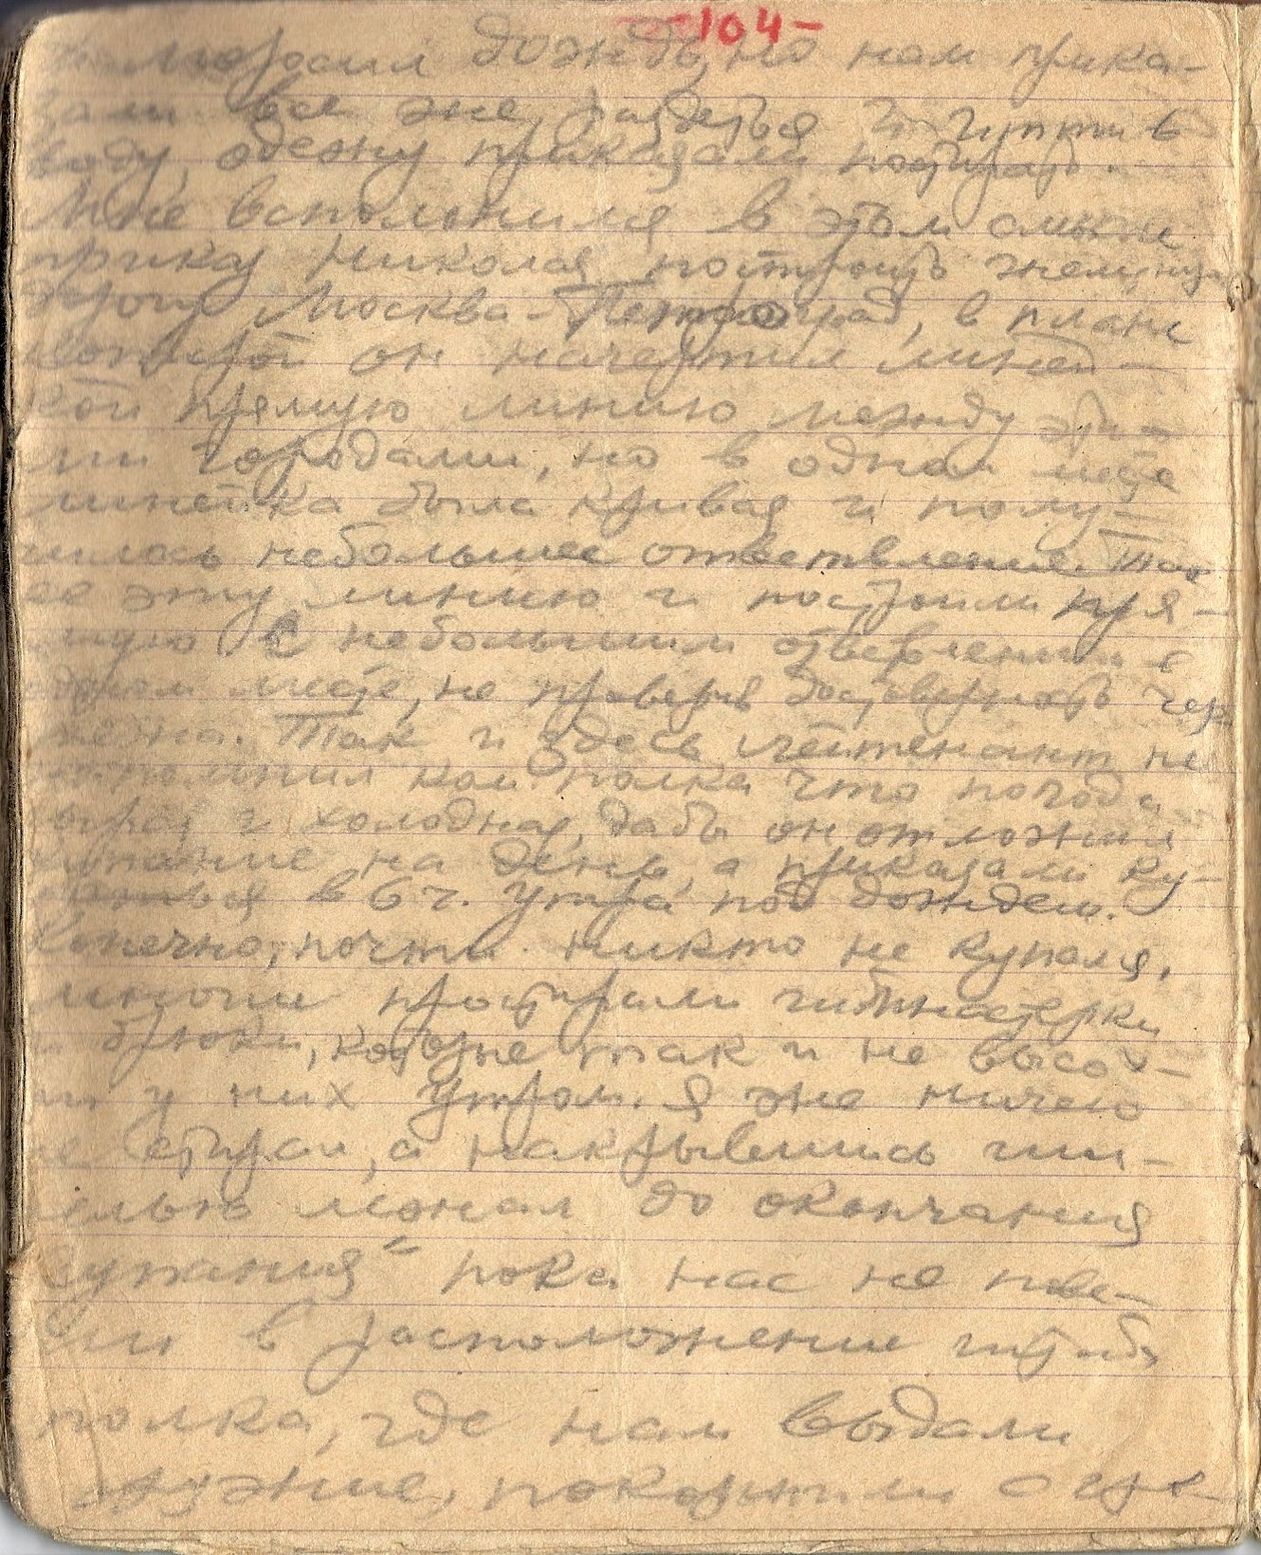 -104-
моросил дождь, но нам прика-
зали все же раздеться и итти в
воду, одежду приказали постирать.
Мне вспомнился в этом смысле
приказ Николая построить железную
дорогу Москва-Петроград, в плане
которой он начертил линей-
кой прямую линию между эти-
ми городами, но в одном месте
линейка была кривая и полу-
чилось небольшое ответвление. Так
ее эту линию и построили пря-
мую с небольшим ответвлением в
одном месте, не проверив достоверность чер
тежа. Так и здесь лейтенант не
напомнил ком. полка что погода
сырая и холодная, дабы он отложил
купание на день, а приказали ку-
паться в 6 ч. утра под дождем.
Конечно, почти никто не купался,
многие простирали гимнастерки
и брюки, которые так и не высох-
ли у них утром. Я же ничего
не стирал, а накрывшись ши-
нелью лежал до окончания
купания - пока нас не пове-
ли в расположение штаба
полка, где нам выдали
оружие, покормили